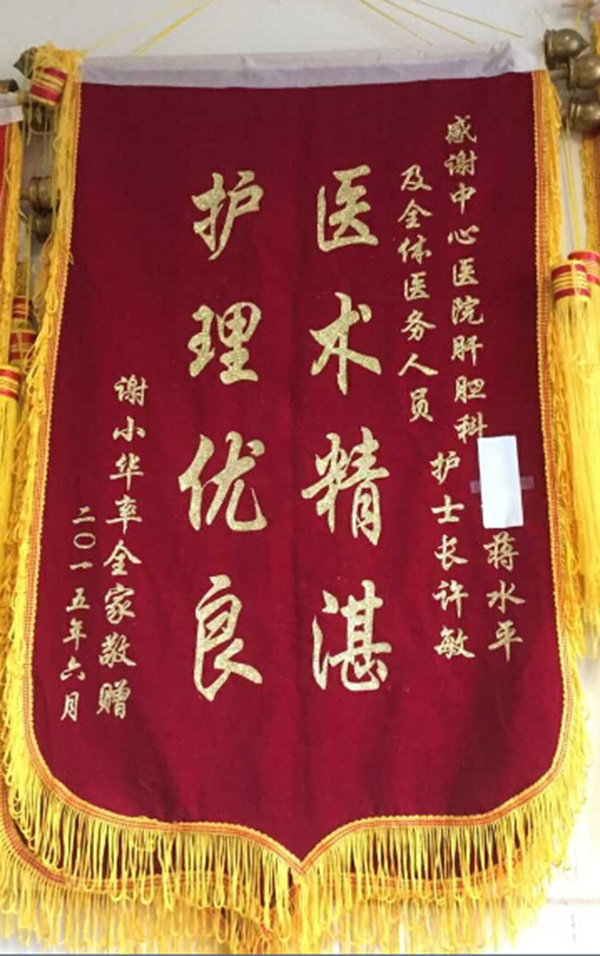 感谢中心医院肝胆科
蒋水平
护士长许敏
及全体医务人员
医术精湛
护理优良
谢小华率全家敬赠
二〇一五年六月